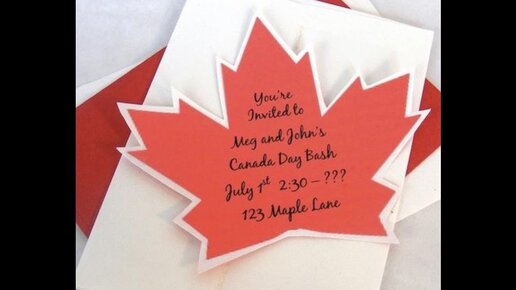 You're
Invited to
Meg and John's
Canada Day Bash
July 1st 2:30 – ???
123 Maple Lane